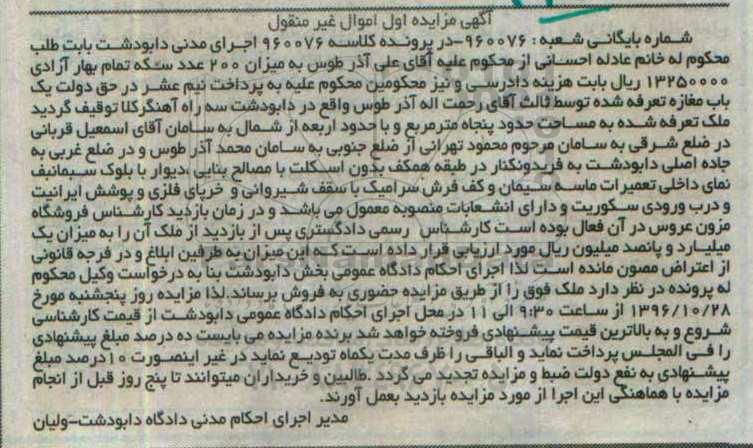 آگهی مزایده اول اموال غیر منقول
شماره بایگانی شعبه : ۹۶۰۰۷۶-در پرونده کلاسه ۹۶۰۰۷۶ اجرای مدنی دابودشت بابت طلب
محکوم له خانم عادله احسانی از محکوم علیه آقای علی آذر طوس به میزان ۲۰۰ عدد سکه تمام بهار آزادی
۱۳۲۵۰۰۰۰ ریال بابت هزینه دادرسی و نیز محکومین محکوم علیه به پرداخت نیم عشر در حق دولت یک
باب مغازه تعرفه شده توسط ثالث آقای رحمت اله آذر طوس واقع در دابودشت سه راه آهنگرکلا توقیف گردید
ملک تعرفه شده به مساحت حدود پنجاه مترمربع و با حدود اربعه از شمال به سامان آقای اسمعیل قربانی
در ضلع شرقی به سامان مرحوم محمود تهرانی از ضلع جنوبی به سامان محمد آذر طوس و در ضلع غربی به
جاده اصلی دابودشت به فریدونکنار در طبقه همکف بدون اسکلت با مصالح بنایی ،دیوار با بلوک سیمانیف
نمای داخلی تعمیرات ماسه سیمان و کف فرش سرامیک با سقف شیروانی و خرپای فلزی و پوشش ایرانیت
و درب ورودی سکوریت و دارای انشعابات منصوبه معمول می باشد و در زمان بازدید کارشناس فروشگاه
مزون عروس در آن فعال بوده است کارشناس رسمی دادگستری پس از بازدید از ملک آن را به میزان یک
میلیارد و پانصد میلیون ریال مورد ارزیابی قرار داده است که این میزان به طرفین ابلاغ و در فرجه قانونی
از اعتراض مصون مانده است لذا اجرای احکام دادگاه عمومی بخش دابودشت بنا به درخواست وکیل محکوم
له پرونده در نظر دارد ملک فوق را از طریق مزایده حضوری به فروش برساند.لذا مزایده روز پنجشنبه مورخ
۱۳۹۶/۱۰/۲۸ از ساعت ۹:۳۰ الی ۱۱ در محل اجرای احکام دادگاه عمومی دابودشت از قیمت کارشناسی
شروع و به بالاترین قیمت پیشنهادی فروخته خواهد شد برنده مزایده می بایست ده درصد مبلغ پیشنهادی
را فی المجلس پرداخت نماید و الباقی را ظرف مدت یکماه تودیع نماید در غیر اینصورت ۱۰درصد مبلغ
پیشنهادی به نفع دولت ضبط و مزایده تجدید می گردد .طالبین و خریداران میتوانند تا پنج روز قبل از انجام
مزایده با هماهنگی این اجرا از مورد مزایده بازدید بعمل آورند.
مدیر اجرای احکام مدنی دادگاه دابودشت-ولیان